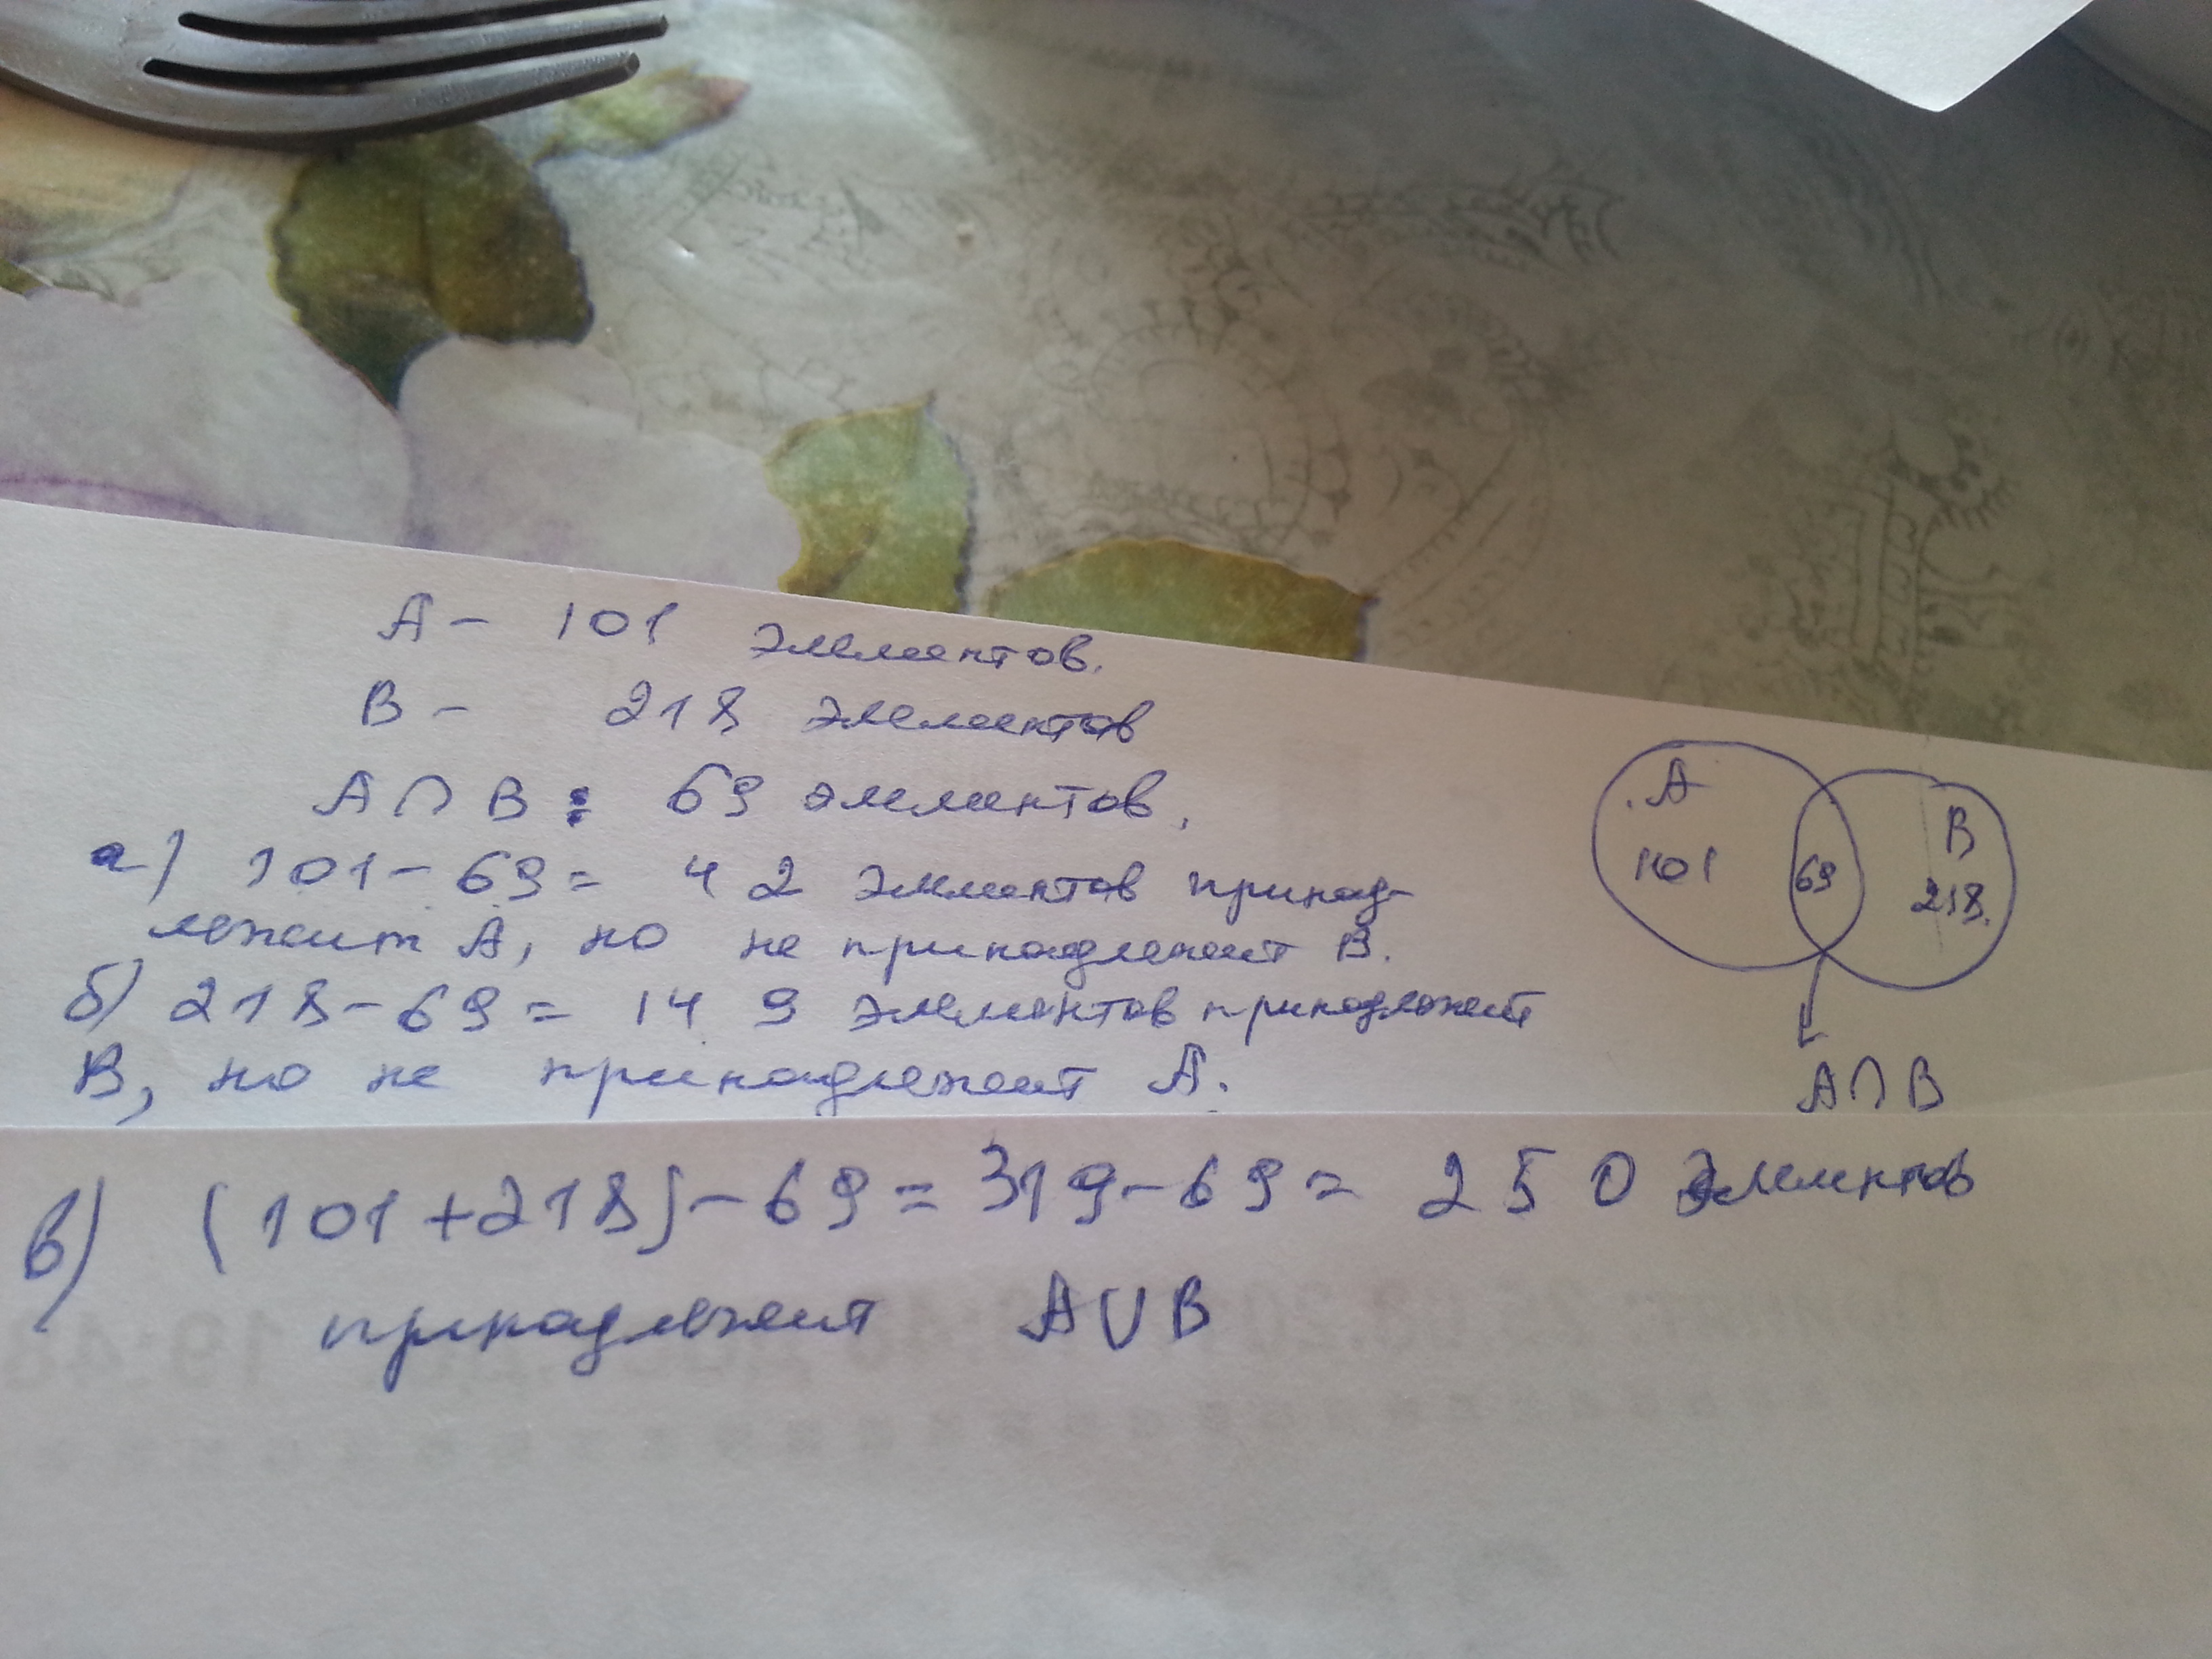 A - 101 элементов.
B - 218 элементов
A ∩ B : 69 элементов.
а) 101 - 69 = 42 элементов принад-
лежит A, но не принадлежит B.
б) 218 - 69 = 149 элементов принадлежит
B, но не принадлежит A.
A
101
69
B
218.
A ∩ B
в) (101 + 218) - 69 = 319 - 69 = 250 элементов
принадлежит A ∪ B